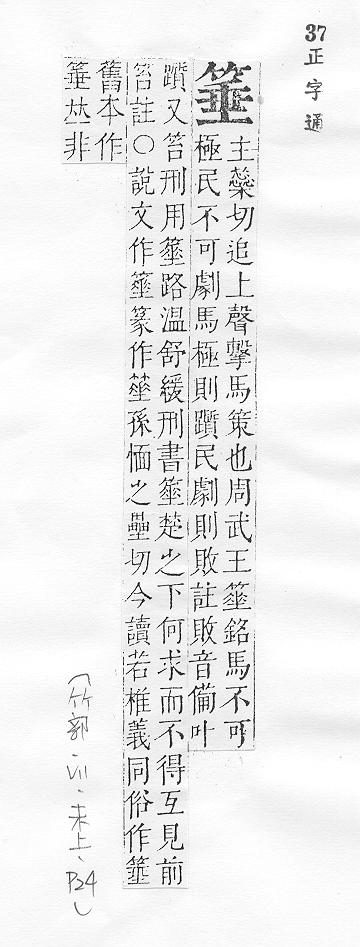 37
正字通
箠
主蘂切追上聲擊馬策也周武王箠銘馬不可
極民不可劇馬極則躓民劇則敗註敗音備叶
躓又笞刑用箠路溫舒緩刑書箠楚之下何求而不得互見前
笞註○說文作箠篆作𥯣孫愐之壘切今讀若椎義同俗作箠
舊本作
箠𠀤非
(竹部、VII、未上、P24)